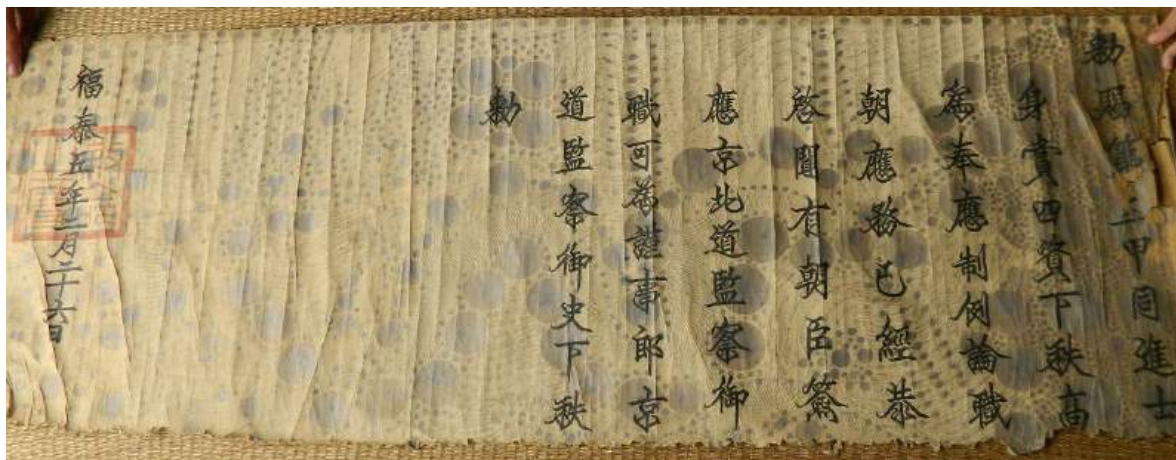 勅三甲同進士
身賞四資下秩高
為奉應制例論職
朝應務已經恭
啓聞有朝臣簽
應京北道監察御
職可為謹事郎京
道監察御史下秩
勅
福泰五年三月二十六日